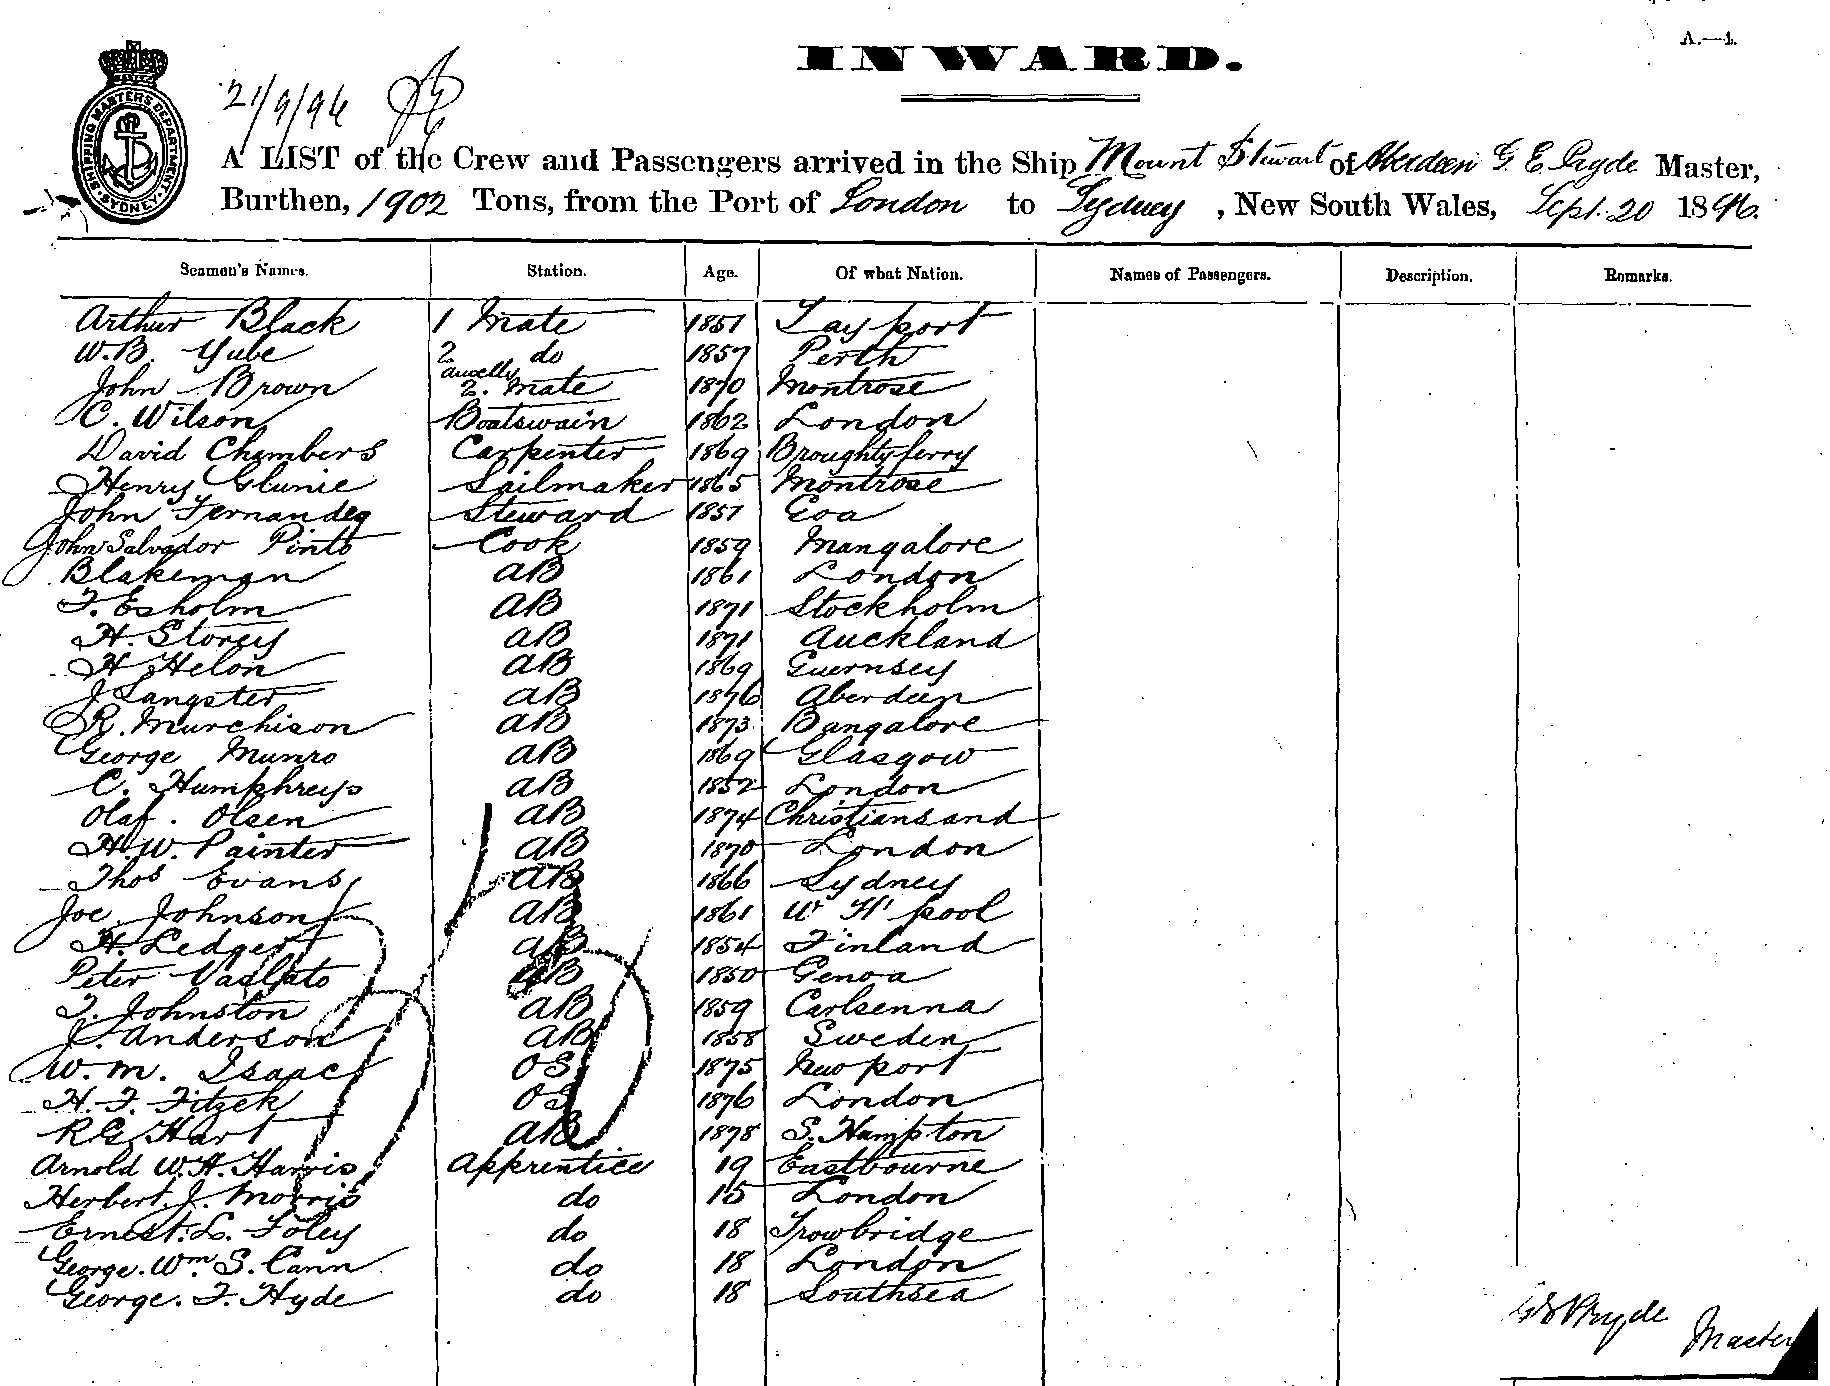 A.—1.
INWARD.
21/9/96
SHIPPING MASTERS DEPARTMENT SYDNEY
A LIST of the Crew and Passengers arrived in the Ship Mount Stewart of Aberdeen G. E. Pryde Master,
Burthen, 1902 Tons, from the Port of London to Sydney, New South Wales, Sept. 20 1896.
Seamen's Names. Station. Age. Of what Nation. Names of Passengers. Description. Remarks.
Arthur Black 1 Mate 1851 Tayport
W.B. Yube 2 do 1857 Perth
John Brown auxelly 2. Mate 1870 Montrose
C. Wilson Boatswain 1862 London
David Chambers Carpenter 1869 Broughtyferry
Henry Glunie Sailmaker 1865 Montrose
John Fernandez Steward 1851 Goa
John Salvador Pinto Cook 1859 Mangalore
Blakeman AB 1861 London
F. Esholm AB 1871 Stockholm
H. Storey AB 1871 Auckland
H Helon AB 1869 Guernsey
J Sangster AB 1876 Aberdeen
R. Murchison AB 1873 Bangalore
George Munro AB 1869 Glasgow
C. Humphreys AB 1852 London
Olaf. Olsen AB 1874 Christiansand
H.W. Painter AB 1870 London
Thos Evans AB 1866 Sydney
Joe Johnson AB 1861 W H'pool
H. Ledgert AB 1854 Finland
Peter AB 1850 Genoa
T. Johnston AB 1859 Carlsenna
J. Anderson AB 1858 Sweden
W.m. Isaac OS 1875 Newport
H. F. Fitzek OS 1876 London
R G Hart AB 1878 S. Hampton
Arnold W. H. Harris Apprentice 19 Eastbourne
Herbert. J. Morris do 15 London
Ernest. L. Foley do 18 Trowbridge
George. Wm. S. Cann do 18 London
George. F. Hyde do 18 Southsea
G E Pryde Master